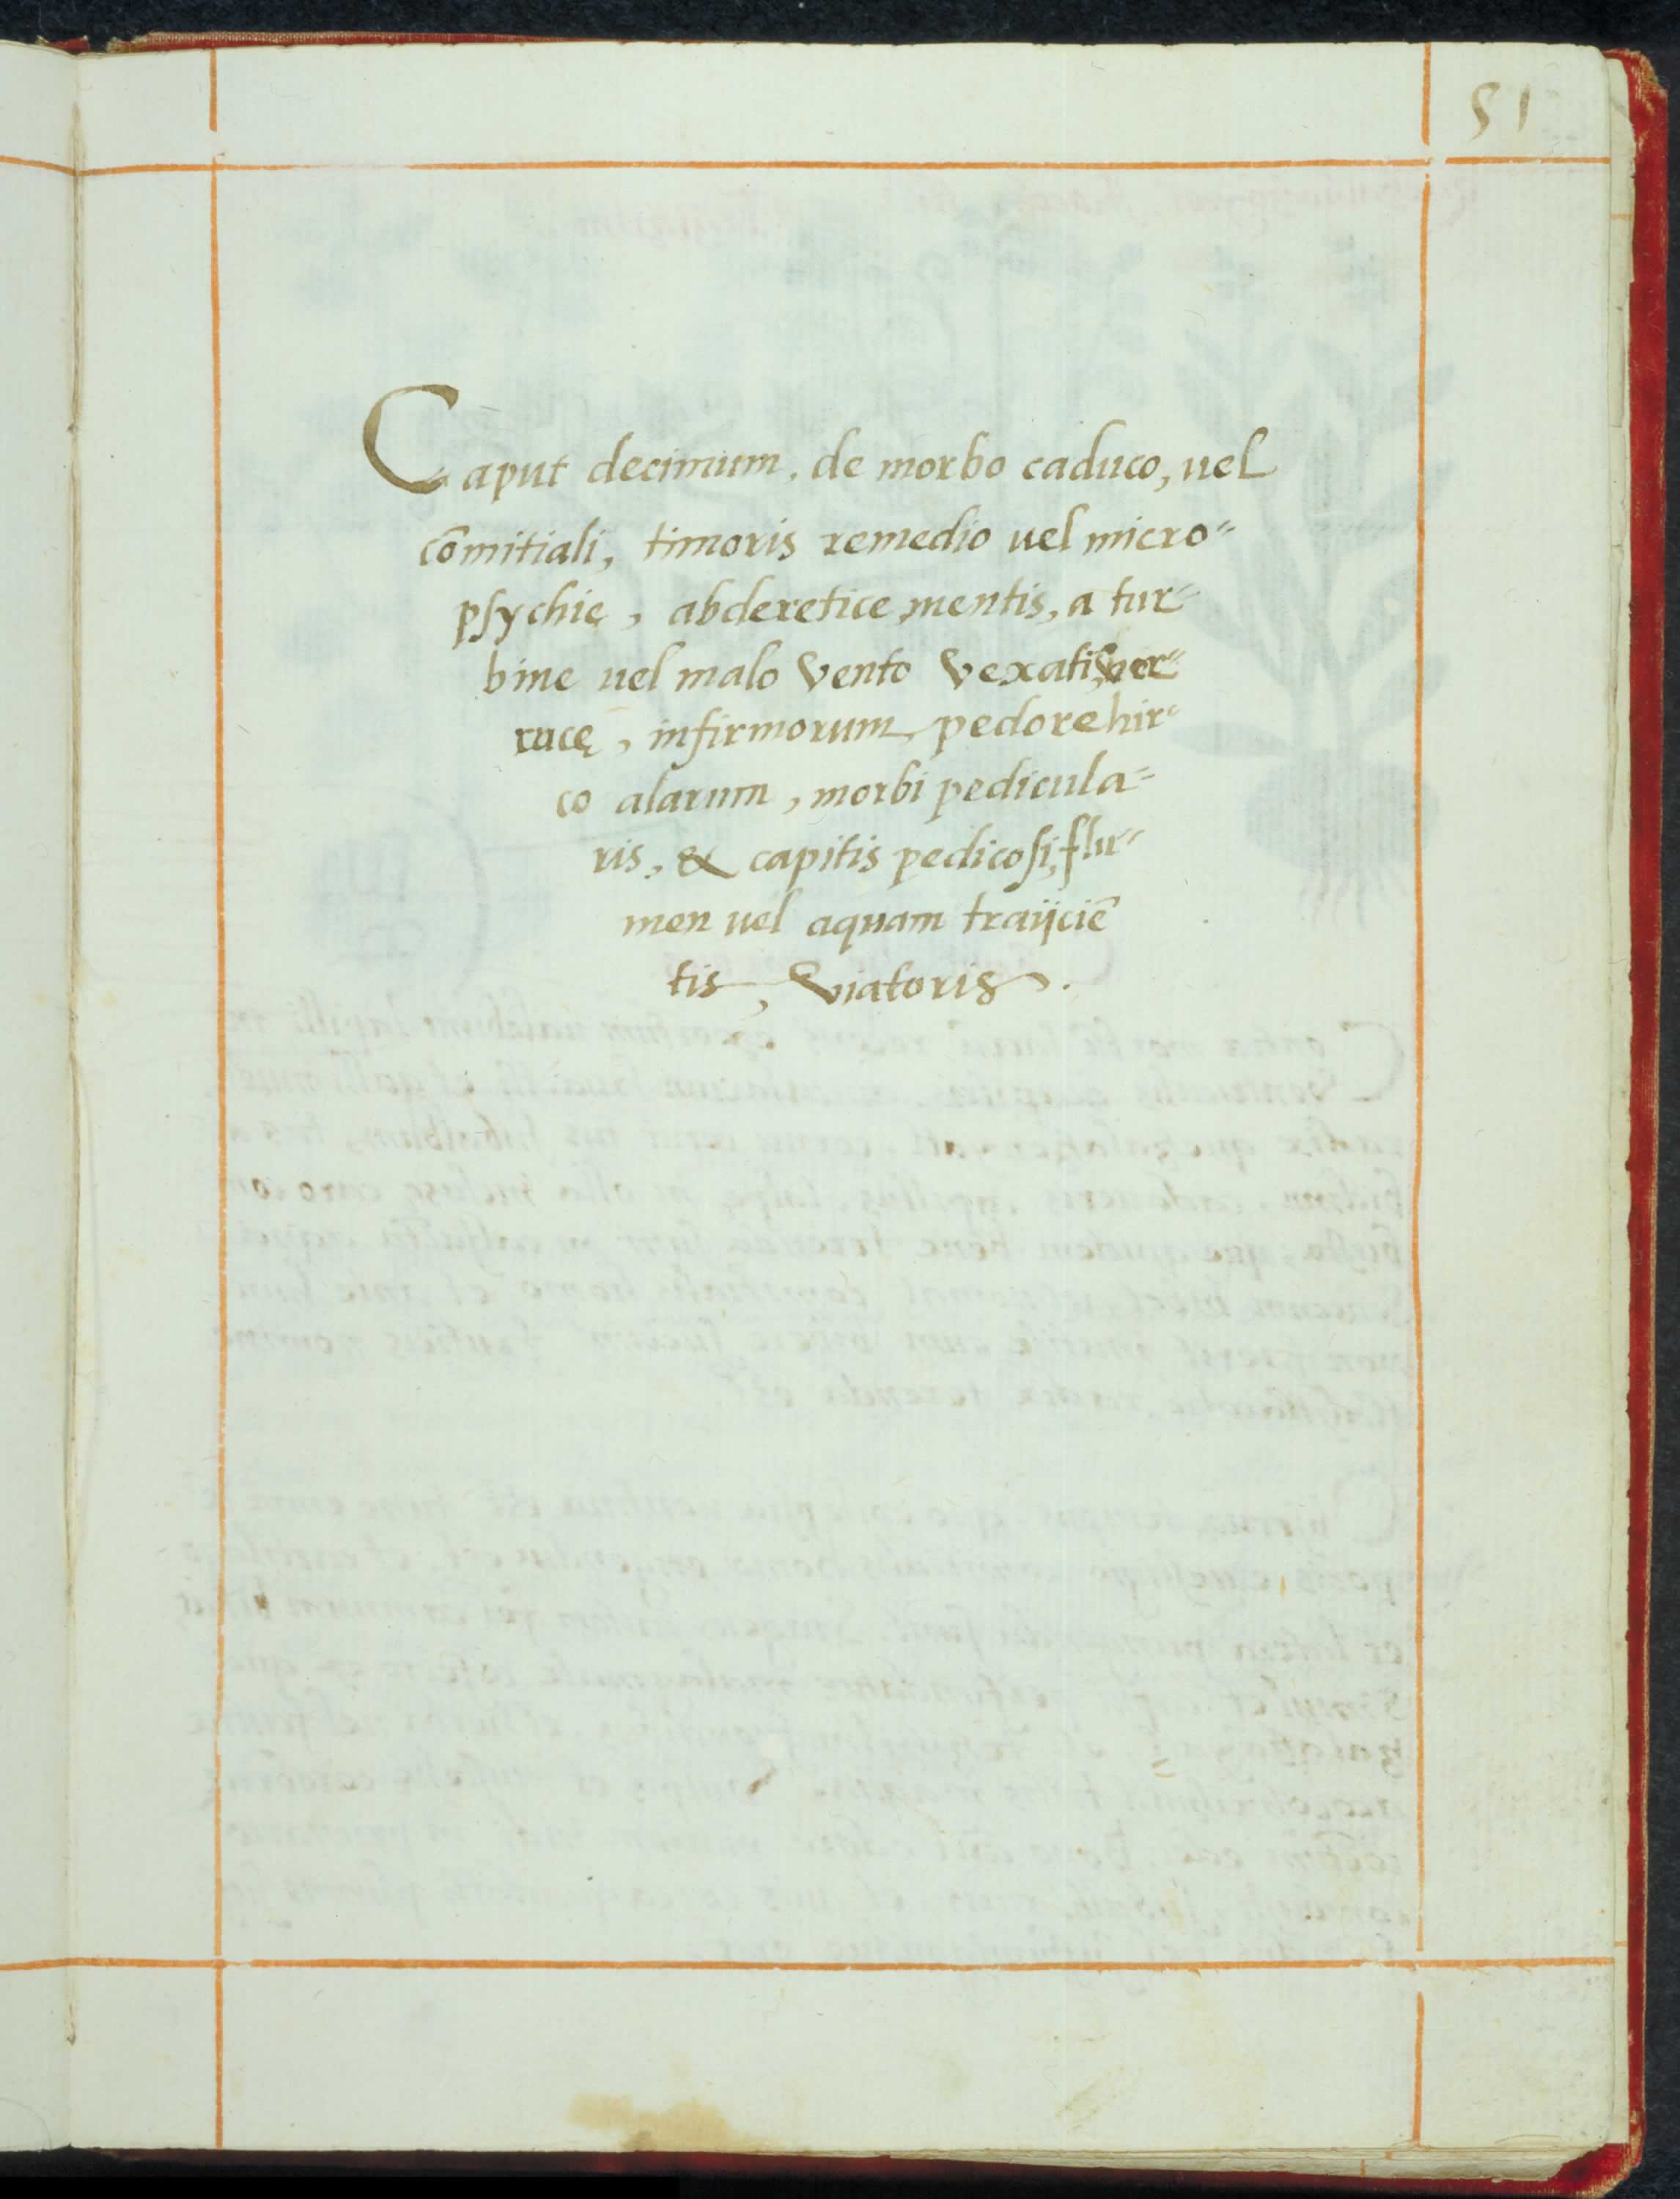 51
Caput decimum, de morbo caduco, uel
cōmitiali, timoris remedio uel micro=
psychię, abderetice mentis, a tur=
bine uel malo vento vexati, ver=
rucę, infirmorum, pedore hir=
co alarum, morbi pedicula=
ris, & capitis pedicosi, flu=
men uel aquam traijciē
tis, viatoris.